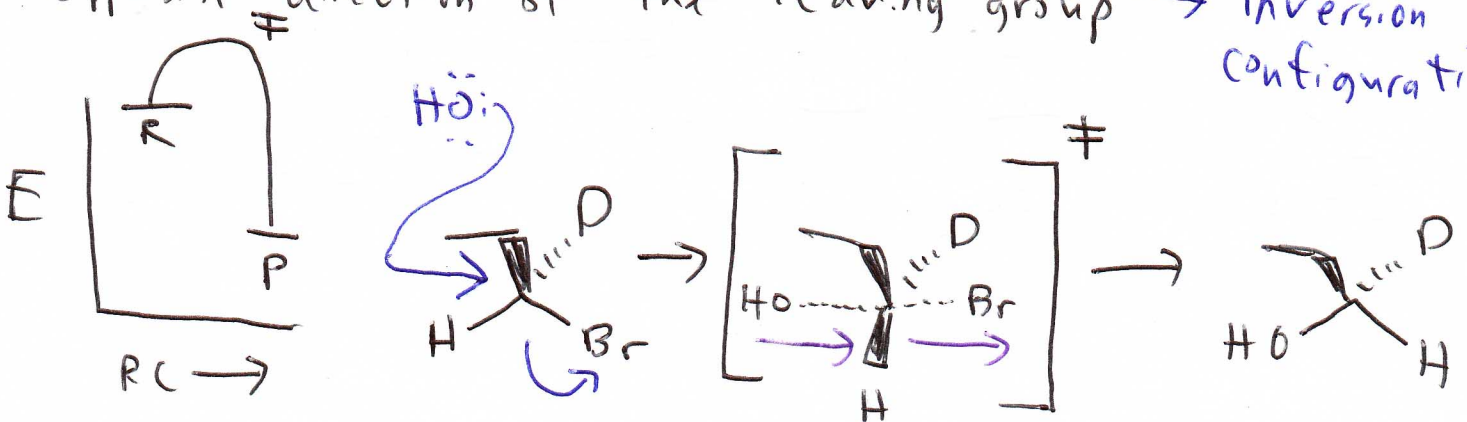 of the leaving group → inversion
configurati
‡
E
R
P
RC →
HÖ:
D
H
Br
→
‡
HO
D
Br
H
→
D
HO
H